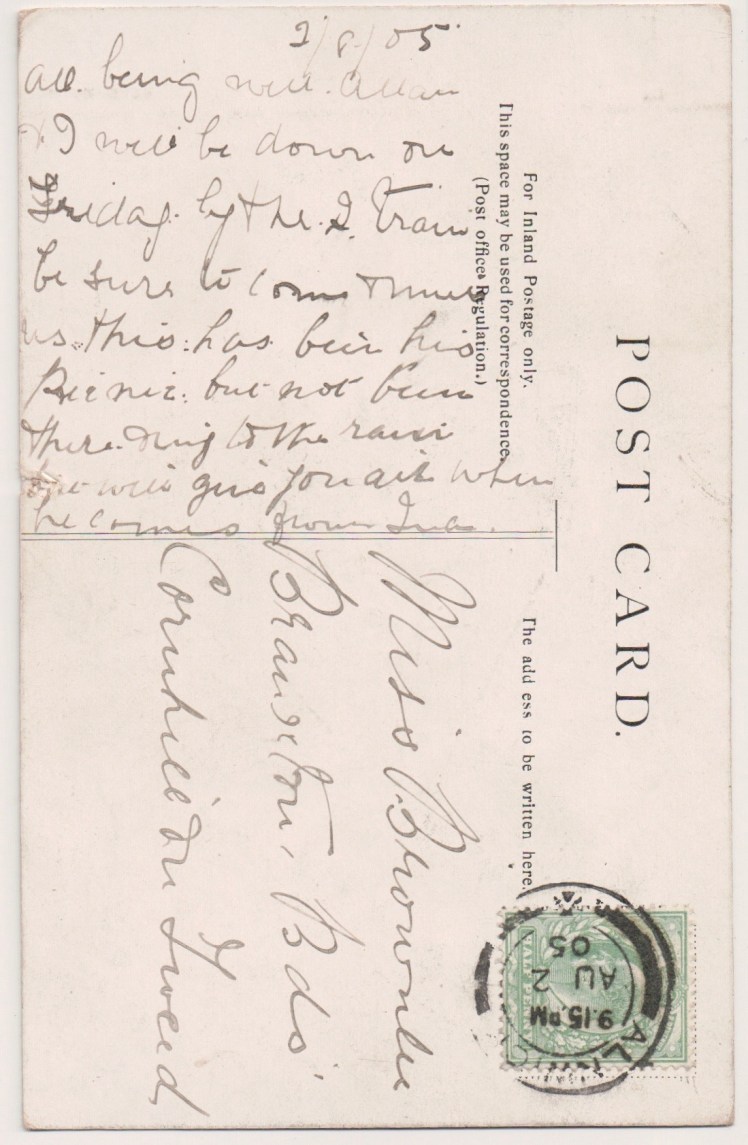 2/8/05
All being well Allan
& I will be down on
Friday by the 2 Train
be sure to come & meet
us this has been his
Picnic but not been
there owing to the rain
but will give you all when
he comes from
POST CARD.
For Inland Postage only.
This space may be used for correspondence
(Post office Regulation.)
The add ess to be written here.
Miss Brownlee
Branxton Bds
Cornhill on Tweed
HALF PENNY
ALNWICK
9.15 PM
AU 2
05